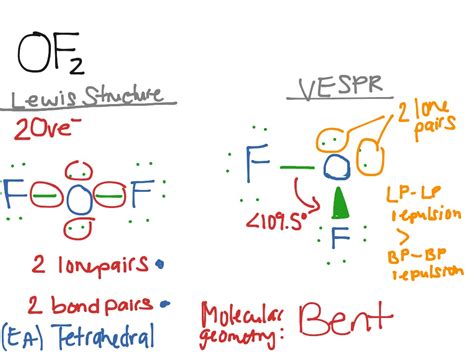 OF2
Lewis Structure
20ve-
F O F
2 lonepairs
2 bond pairs
(EA) Tetrahedral
VESPR
2 lone
pairs
F O
<109.5°
F
LP-LP
repulsion
>
BP-BP
repulsion
Molecular
geometry: Bent